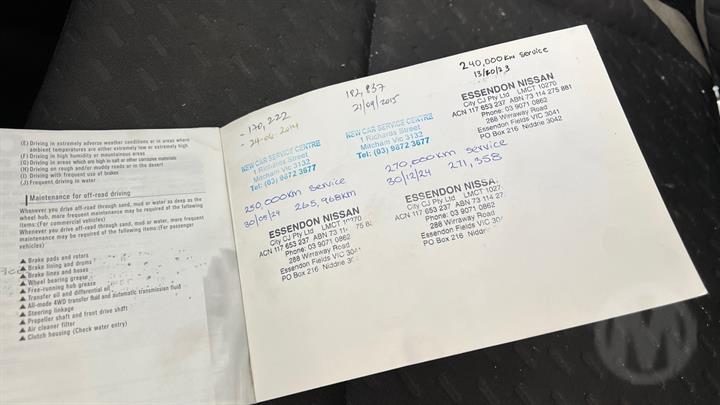 (E) Driving in extremely adverse weather conditions or in areas where
ambient temperatures are either extremely low or extremely high
(F) Driving in high humidity or mountainous areas
(G) Driving in areas which are high in salt or other corrosive materials
(H) Driving on rough and/or muddy roads or in the desert
(I) Driving with frequent use of brakes
(J) Frequent driving in water
Maintenance for off-road driving
Whenever you drive off-road through sand, mud or water as deep as the
wheel hub, more frequent maintenance may be required of the following
items:(For commercial vehicles)
Whenever you drive off-road through sand, mud or water, more frequent
maintenance may be required of the following items:(For passenger
vehicles)
▲ Brake pads and rotors
▲ Brake lining and drums
▲ Brake lines and hoses
▲ Wheel bearing grease
▲ Free-running hub grease
▲ Transfer oil and differential oil
▲ All-mode 4WD transfer fluid and automatic transmission fluid
▲ Steering linkage
▲ Propeller shaft and front drive shaft
▲ Air cleaner filter
▲ Clutch housing (Check water entry)
- 170,222
- 24-06-2014
NEW CAR SERVICE CENTRE
1 Richards Street
Mitcham Vic 3132
Tel: (03) 9872 3677
182,837
21/09/2015
NEW CAR SERVICE CENTRE
1 Richards Street
Mitcham Vic 3132
Tel: (03) 9872 3677
240,000km service
ESSENDON NISSAN
City CJ Pty Ltd LMCT 10270
ACN 117 653 237 ABN 73 114 275 881
Phone: 03 9071 0862
288 Wirraway Road
Essendon Fields VIC 3041
PO Box 216 Niddrie 3042
250,000km service
30/05/24 265,968km
ESSENDON NISSAN
City CJ Pty Ltd LMCT 10270
ACN 117 653 237 ABN 73 11 75 8
Phone: 03 9071 0862
288 Wirraway Road
Essendon Fields VIC 304
PO Box 216 Niddrie 3
270,000km service
30/12/24 271,358
ESSENDON NISSA
City CJ Pty Ltd LMCT 1027
ACN 117 653 237 ABN 73 114 27
Phone: 03 9071 0862
288 Wirraway Road
Essendon Fields VIC 304
PO Box 216 Niddrie 3
M